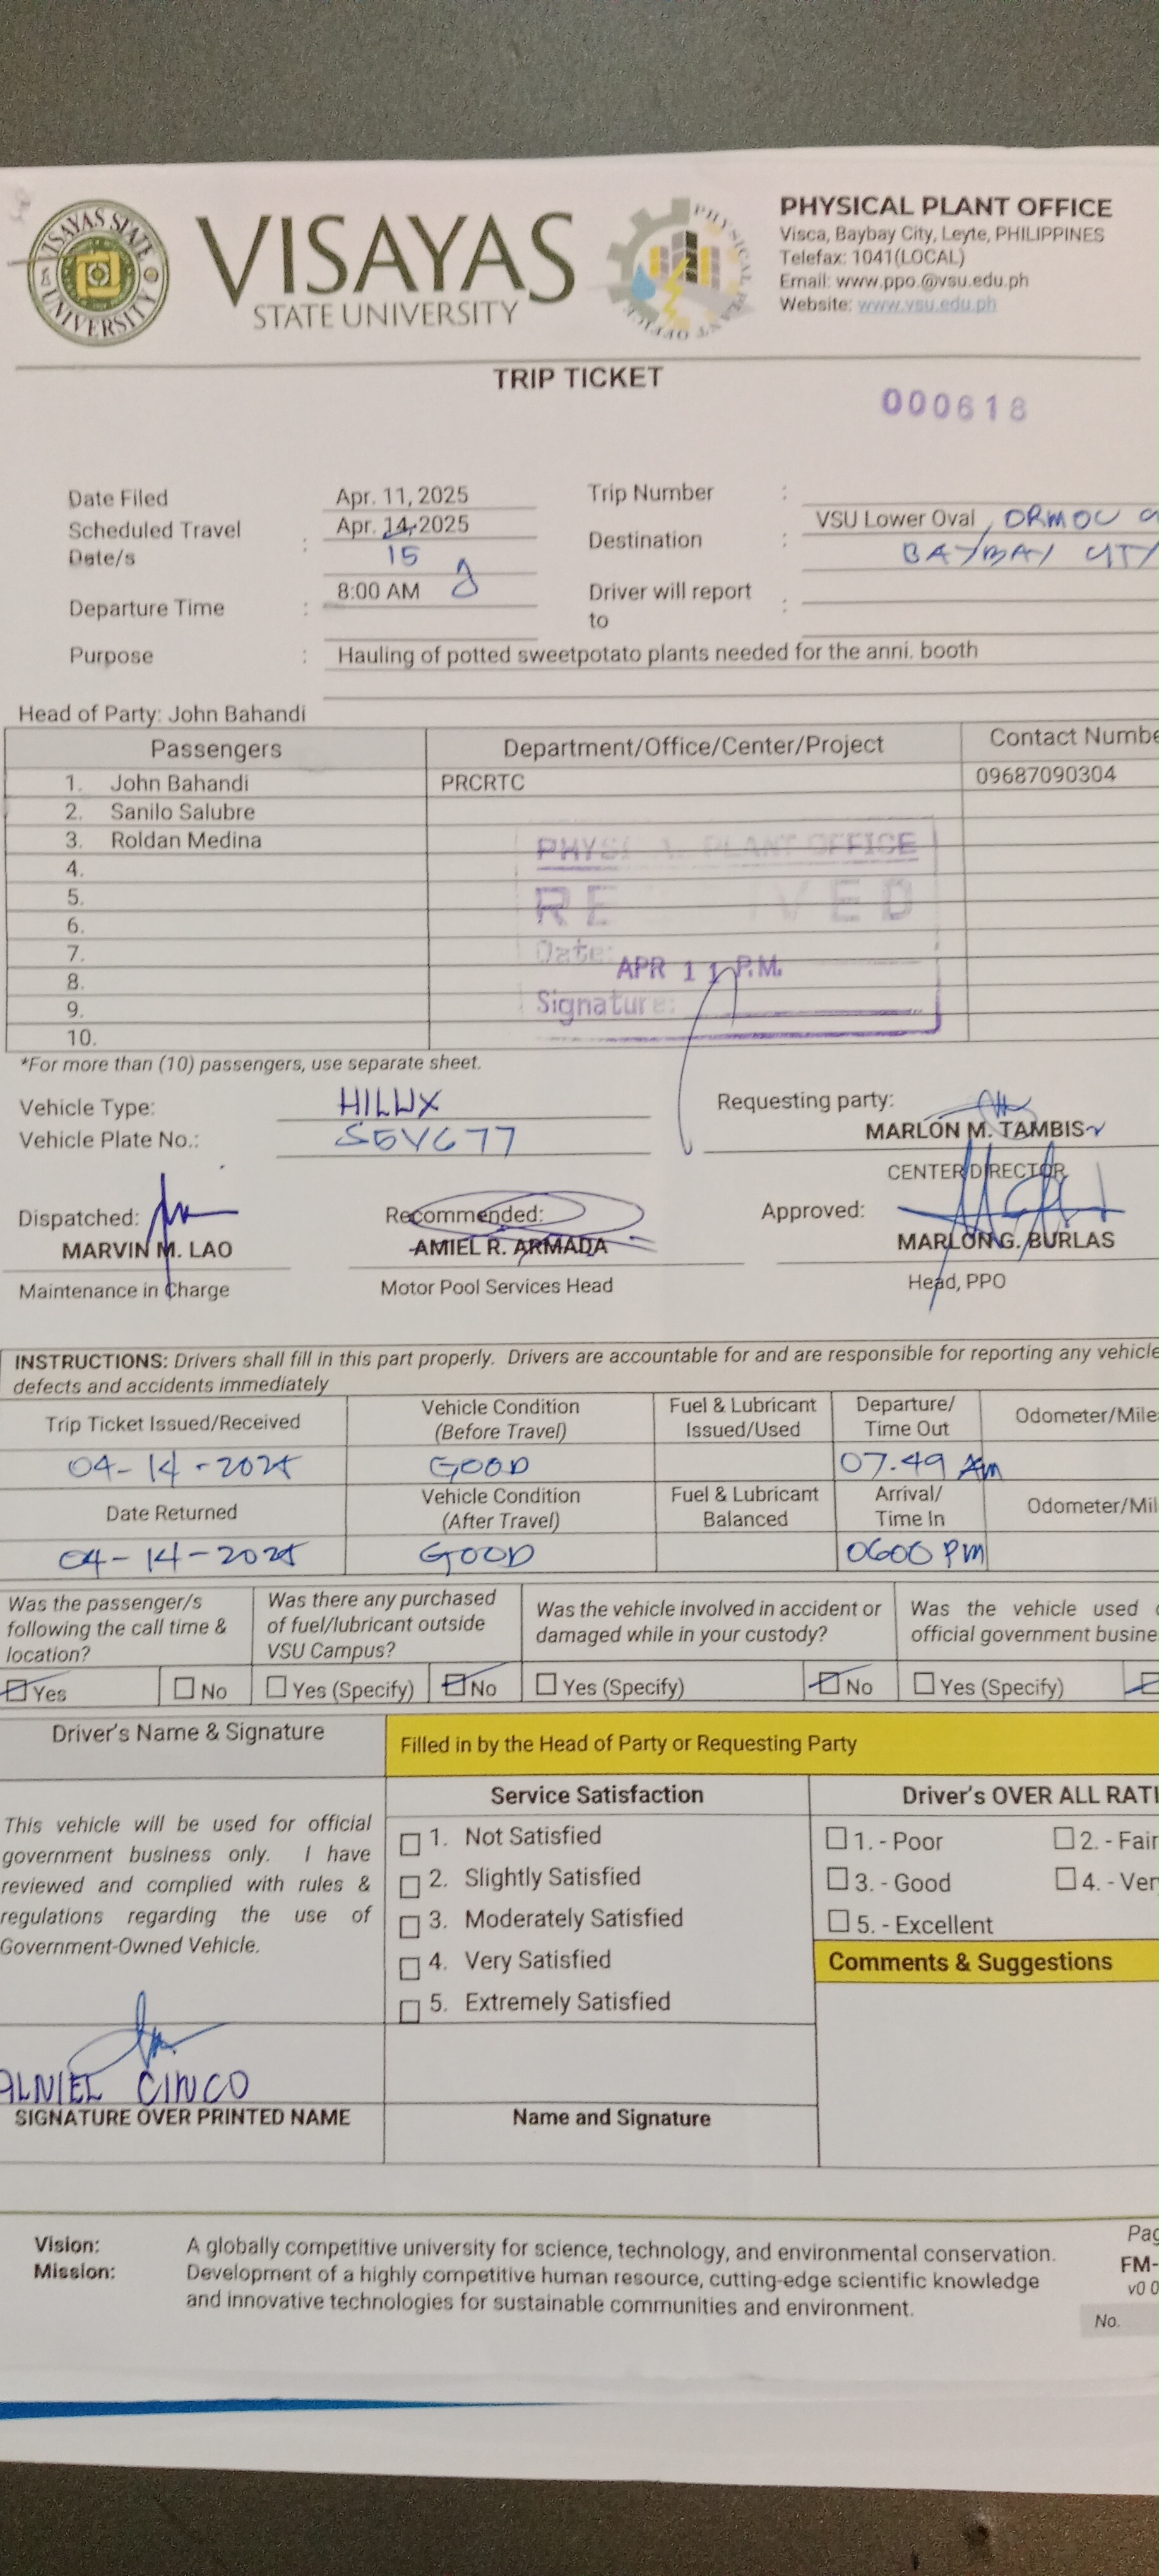 VISAYAS STATE UNIVERSITY
VISAYAS
STATE UNIVERSITY
PHYSICAL PLANT OFFICE
PHYSICAL PLANT OFFICE
Visca, Baybay City, Leyte, PHILIPPINES
Telefax: 1041(LOCAL)
Email: www.ppo.@vsu.edu.ph
Website: www.vsu.edu.ph
TRIP TICKET
000618
Date Filed Apr. 11, 2025 Trip Number :
Scheduled Travel Date/s : Apr. 14, 2025 15
Destination : VSU Lower Oval, ORMOC
BAYBAY CITY
Departure Time : 8:00 AM
Driver will report to :
Purpose : Hauling of potted sweetpotato plants needed for the anni. booth
Head of Party: John Bahandi
Passengers Department/Office/Center/Project Contact Numbe
1. John Bahandi PRCRTC 09687090304
2. Sanilo Salubre
3. Roldan Medina
4.
5.
6.
7.
8.
9.
10.
PHYSICAL PLANT OFFICE
RE IVED
Date: APR 11 P.M.
Signature:
*For more than (10) passengers, use separate sheet.
Vehicle Type: HILUX
Vehicle Plate No.:
Requesting party:
MARLON M. TAMBIS
CENTER DIRECTOR
Dispatched: Recommended: Approved:
MARVIN M. LAO AMIEL R. ARMADA MARLON G. BURLAS
Maintenance in Charge Motor Pool Services Head Head, PPO
INSTRUCTIONS: Drivers shall fill in this part properly. Drivers are accountable for and are responsible for reporting any vehicle
defects and accidents immediately
Trip Ticket Issued/Received Vehicle Condition (Before Travel) Fuel & Lubricant Issued/Used Departure/ Time Out Odometer/Mile
04-14-2025 GOOD 07.49 Am
Date Returned Vehicle Condition (After Travel) Fuel & Lubricant Balanced Arrival/ Time In Odometer/Mil
04-14-2025 GOOD 0600 PM
Was the passenger/s following the call time & location? Was there any purchased of fuel/lubricant outside VSU Campus? Was the vehicle involved in accident or damaged while in your custody? Was the vehicle used official government busine
Yes No Yes (Specify) No Yes (Specify) No Yes (Specify)
Driver's Name & Signature
Filled in by the Head of Party or Requesting Party
Service Satisfaction Driver's OVER ALL RATI
This vehicle will be used for official
government business only. I have
reviewed and complied with rules &
regulations regarding the use of
Government-Owned Vehicle.
1. Not Satisfied
2. Slightly Satisfied
3. Moderately Satisfied
4. Very Satisfied
5. Extremely Satisfied
1. - Poor 2. - Fair
3. - Good 4. - Ver
5. - Excellent
Comments & Suggestions
ALNIEL CINCO
SIGNATURE OVER PRINTED NAME Name and Signature
Vision: A globally competitive university for science, technology, and environmental conservation.
Mission: Development of a highly competitive human resource, cutting-edge scientific knowledge
and innovative technologies for sustainable communities and environment.
Pag
FM-
v0 0
No.